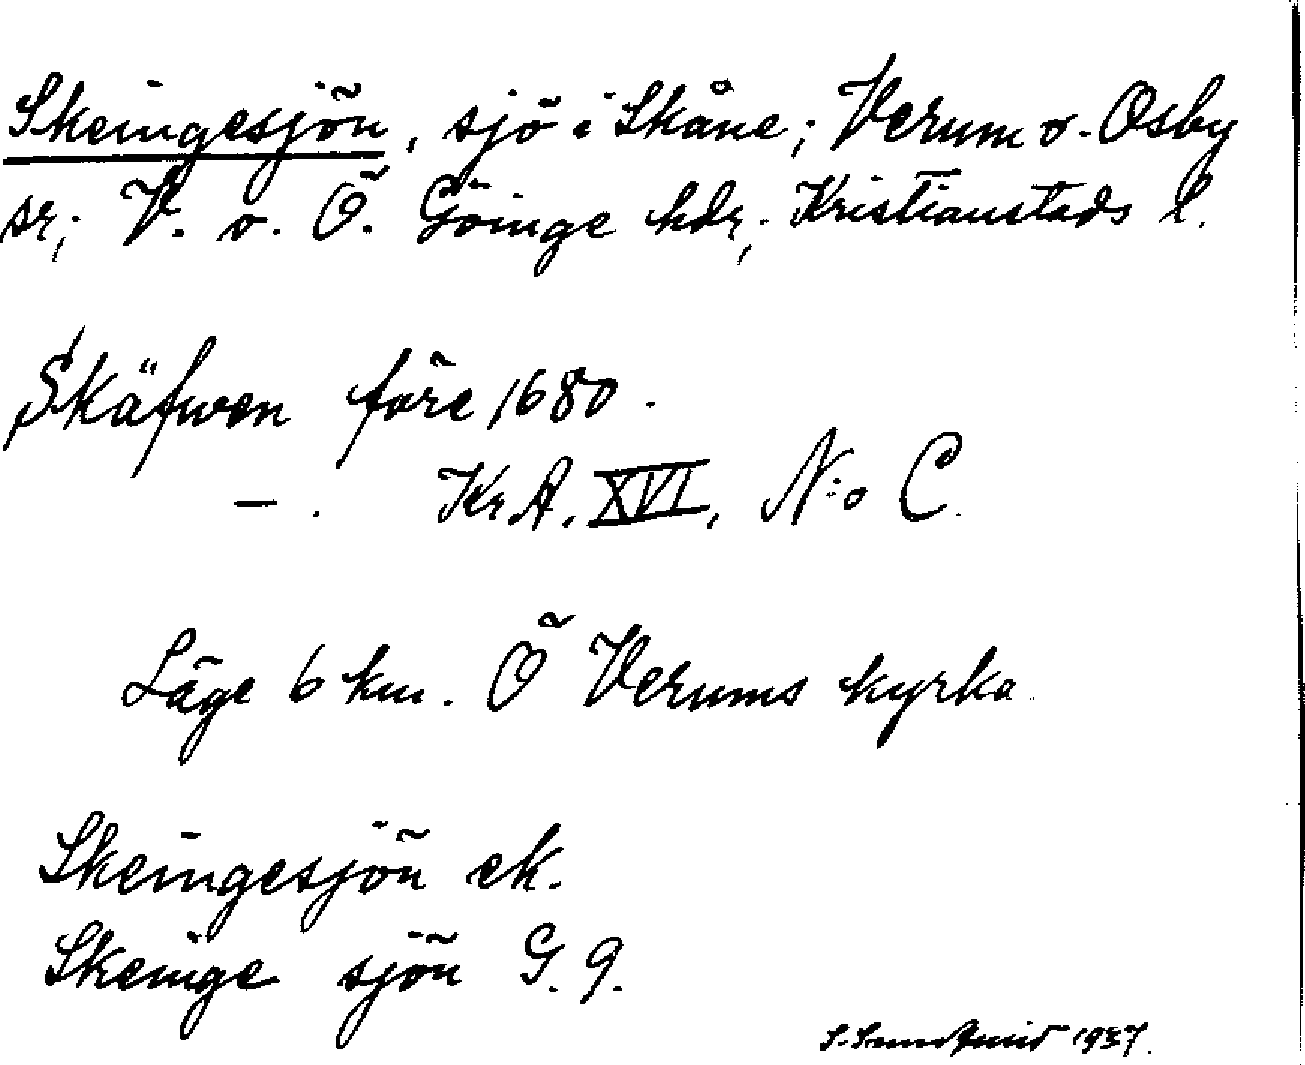 Skeingesjön, sjö i Skåne; Verum o. Osby
sr; V. o. Ö. Göinge hdr; Kristianstads l.
Skäfwen före 1680.
— . Kr.A. XVI, N:o C.
Läge 6 km. Ö Verums kyrka.
Skeingesjön ek.
Skeinge sjön G. 9.
S. 1937.